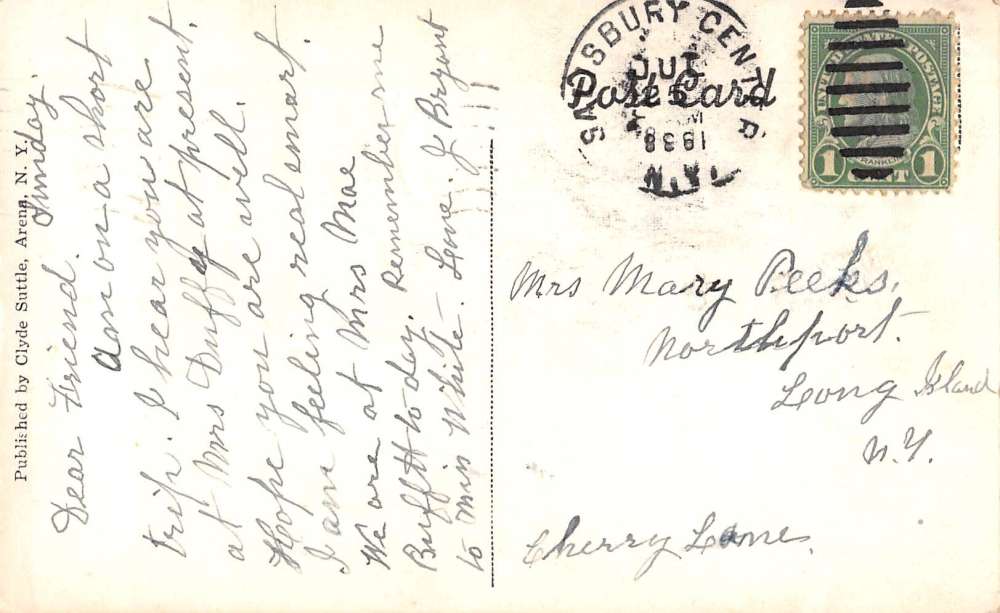 Published by Clyde Suttle, Arena, N. Y.
Sunday
Dear Friend.
Am on a short
trip. I hear you are
at Mrs Duffy at present.
Hope you are well.
I am feeling real smart.
We are at Mrs Mae
today. Remember me
to Miss White - Love. J Bryant
Post Card
SADSBURY CENTER
JUL
5
M
1938
N.Y.
UNITED STATES POSTAGE
FRANKLIN
1 CENT 1
Mrs Mary Peeks.
Northport.
Long Island
N.Y.
Cherry Lane.